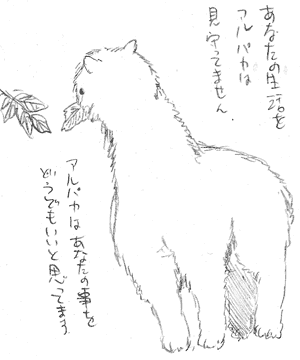 あなたの生活を
アルパカは
見守ってません。
アルパカはあなたの事を
どうでもいいと思ってます。